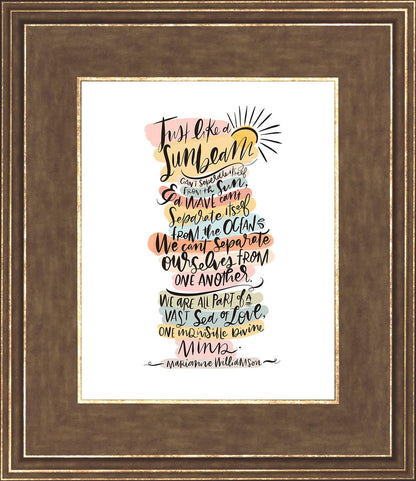 Just like a
Sunbeam
can't separate itself
from the sun,
& a wave can't
separate itself
from the ocean
we can't separate
ourselves from
one another.
we are all part of a
vast sea of love,
one indivisible divine
mind.
Marianne Williamson